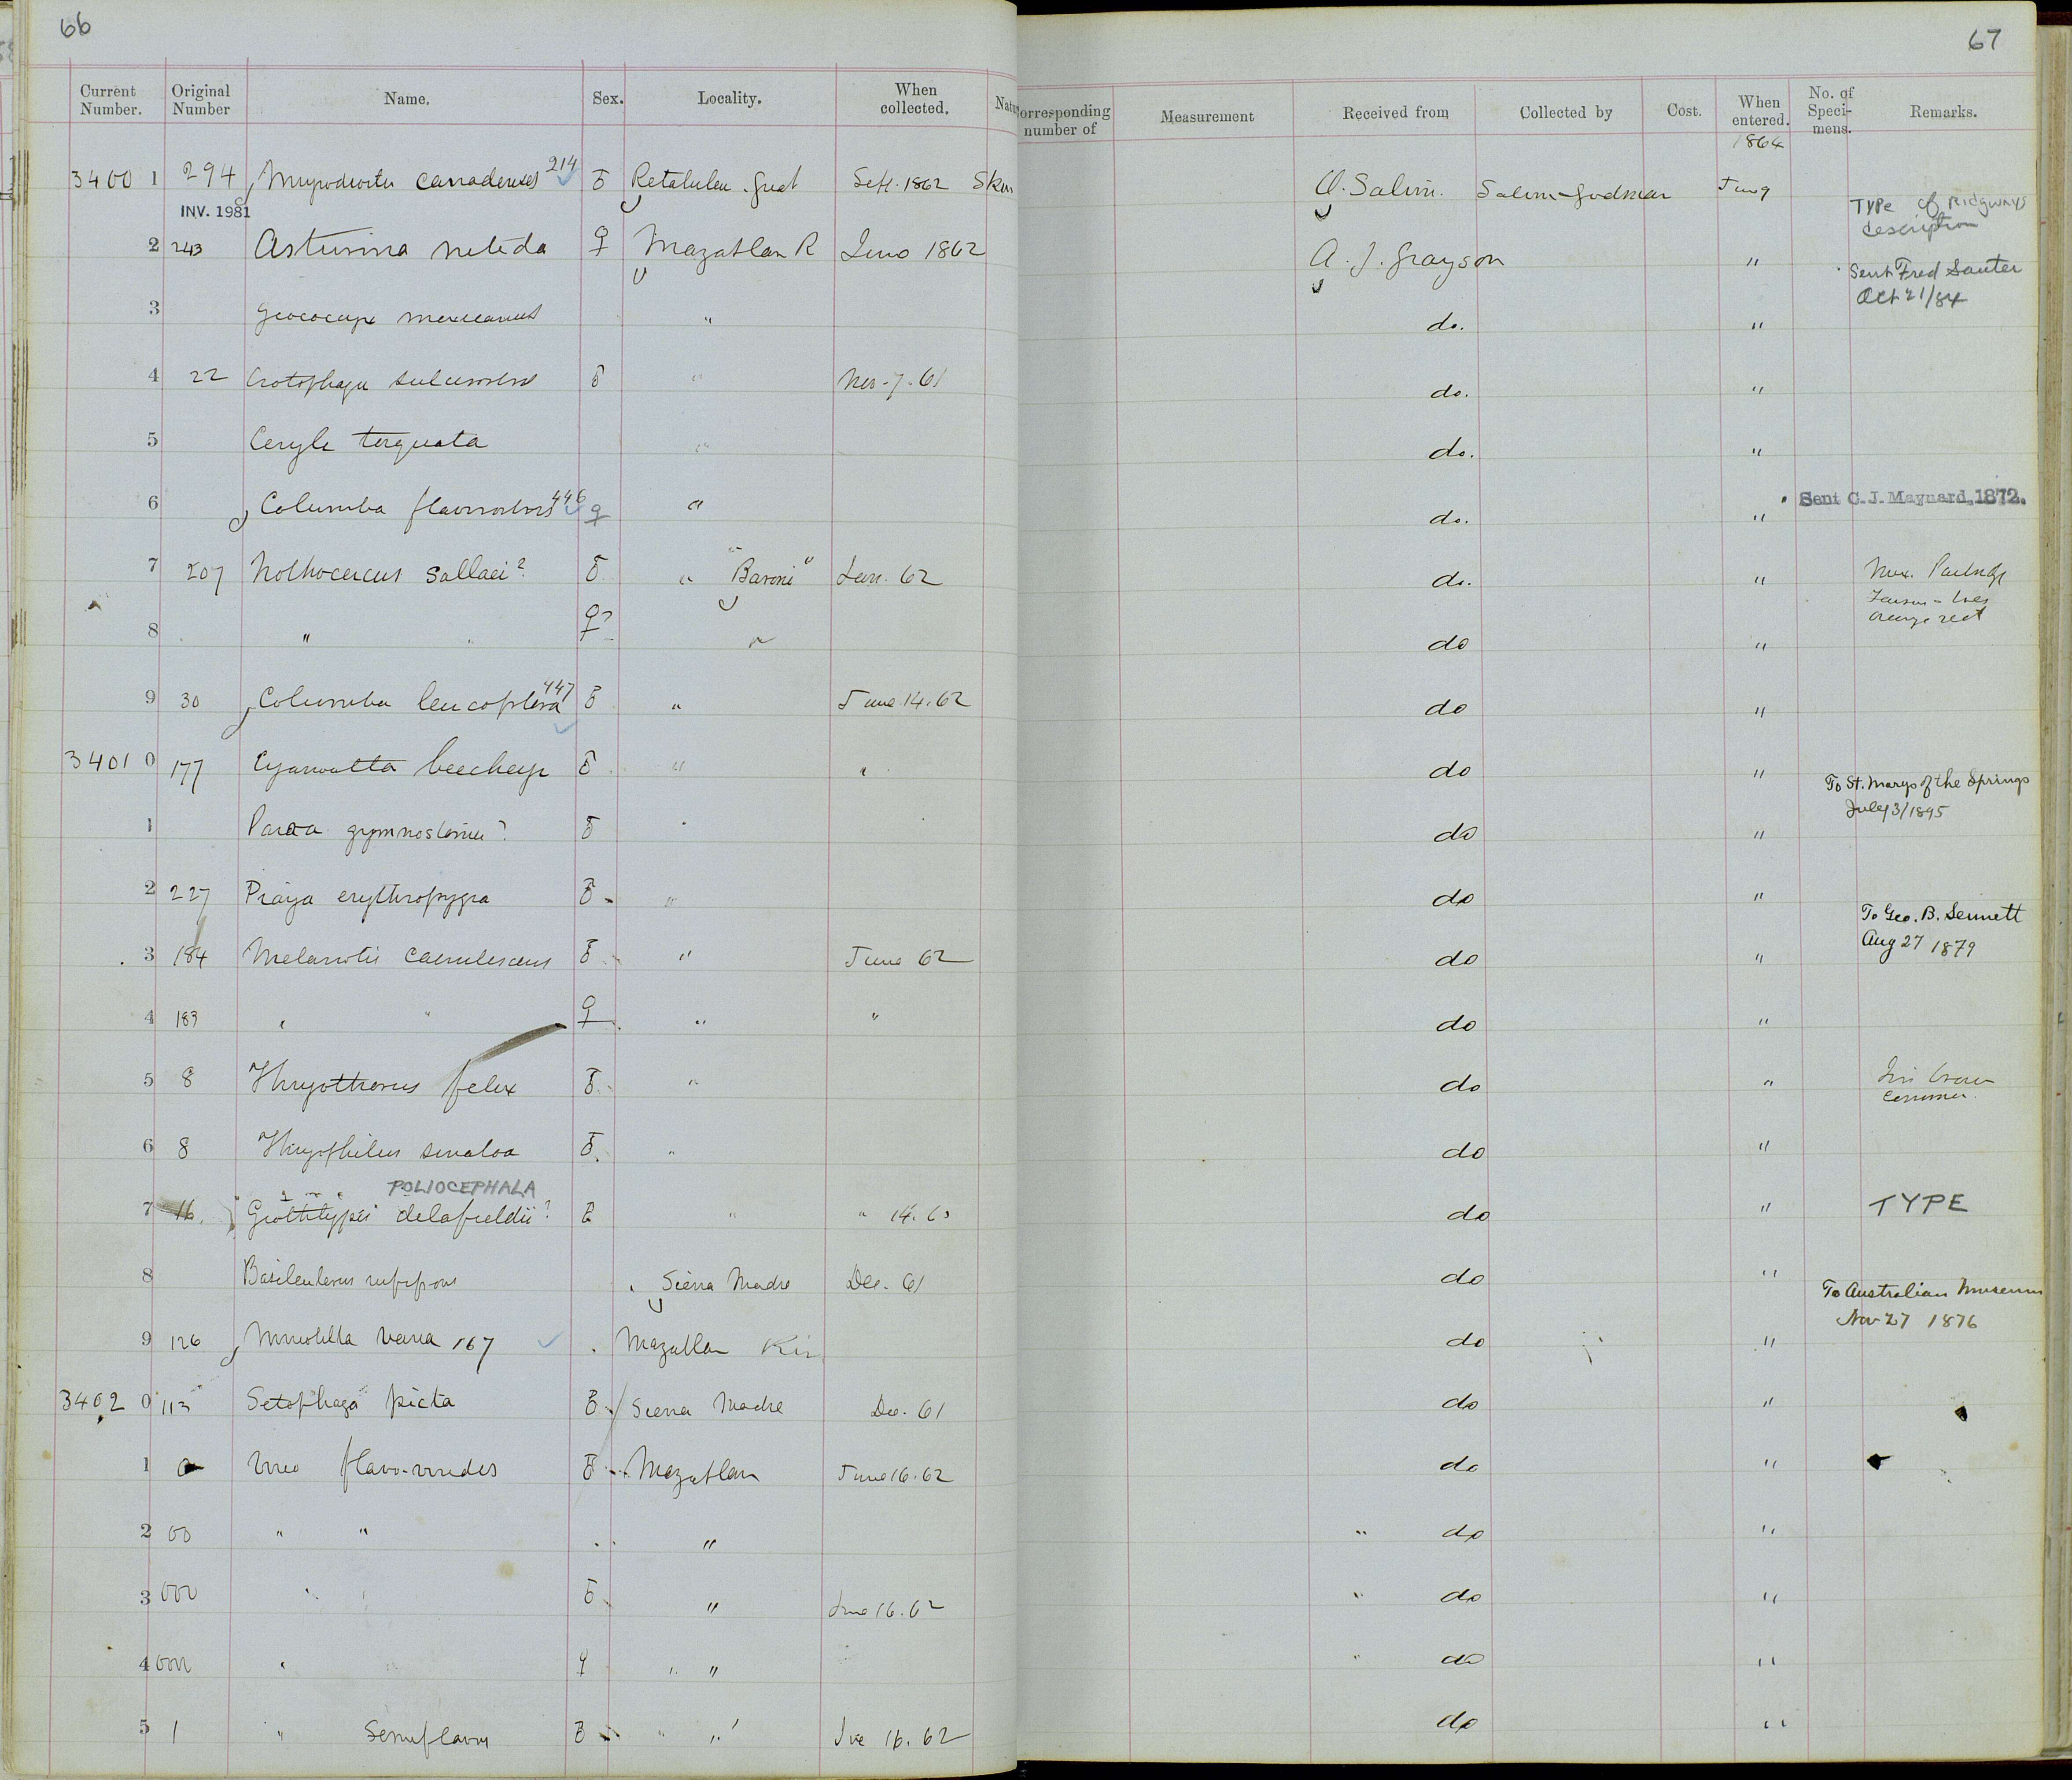 66
67
Current Number. Original Number Name. Sex. Locality. When collected. Natu
orresponding number of Measurement Received from Collected by Cost. When entered. No. of Speci-mens. Remarks.
1864
3400 1 294 Myiodioctes canadensis 214 ♂ Retaluleu. Guat Sept. 1862 Skin O. Salvin. Salvin-Godman June 9
INV. 1981
Type of Ridgways description
2 243 Asturina nitida ♀ Mazatlan R June 1862 A. J. Grayson "
Sent Fred Sauter Oct 21/84
3 Geococcyx mexicanus " do. "
4 22 Crotophaga sulcirostris ♂ " Nov-7-61 do. "
5 Ceryle torquata " do. "
6 Columba flavirostris 446 ♀ " do. " Sent C. J. Maynard, 1872.
7 207 Nothocercus Sallaei? ♂ " "Baroni" Jan. 62 do. " Mex. Partridge
8 " " ♀? " do "
orange red
9 30 Columba leucoptera 447 ♂ " June 14. 62 do "
3401 0 177 Cyanocitta beecheyi ♂ " " do "
To St. Marys of the Springs July 3/1895
1 Parra gymnostoma? ♂ " do "
2 227 Piaya erythropygia ♂ " do "
To Geo. B. Sennett Aug 27 1879
3 184 Melanotis caerulescens ♂ " June 62 do "
4 183 " " ♀ " " do "
5 8 Thryothorus felix ♂ " do "
6 8 Thryophilus sinaloa ♂ " do "
POLIOCEPHALA
7 16 Geothlypis delafieldii? ♂ " " 14. 63 do " TYPE
8 Basileuterus rufifrons Sierra Madre Dec. 61 do "
To Australian Museum Nov 27 1876
9 126 Mniotilta varia 167 Mazatlan Riv do "
3402 0 113 Setophaga picta ♂ Sierra Madre Dec. 61 do "
1 0 Vireo flavo-viridis ♂ Mazatlan June 16. 62 do "
2 00 " " " " do "
3 000 " ♂ " June 16. 62 " do "
4 0000 " ♀ " " " do "
5 1 " Semiflavus ♂ " " Jue 16. 62 do "